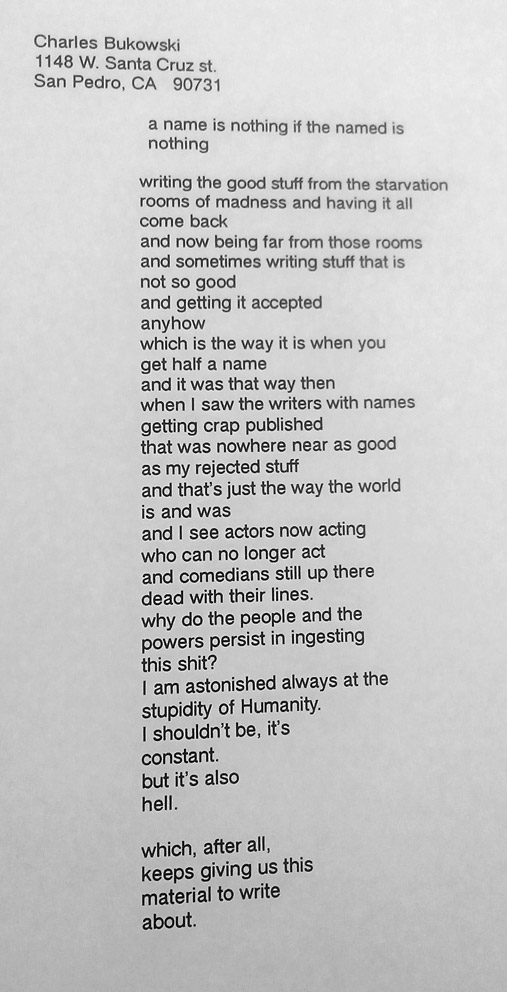 Charles Bukowski
1148 W. Santa Cruz st.
San Pedro, CA 90731
a name is nothing if the named is
nothing
writing the good stuff from the starvation
rooms of madness and having it all
come back
and now being far from those rooms
and sometimes writing stuff that is
not so good
and getting it accepted
anyhow
which is the way it is when you
get half a name
and it was that way then
when I saw the writers with names
getting crap published
that was nowhere near as good
as my rejected stuff
and that's just the way the world
is and was
and I see actors now acting
who can no longer act
and comedians still up there
dead with their lines.
why do the people and the
powers persist in ingesting
this shit?
I am astonished always at the
stupidity of Humanity.
I shouldn't be, it's
constant.
but it's also
hell.
which, after all,
keeps giving us this
material to write
about.